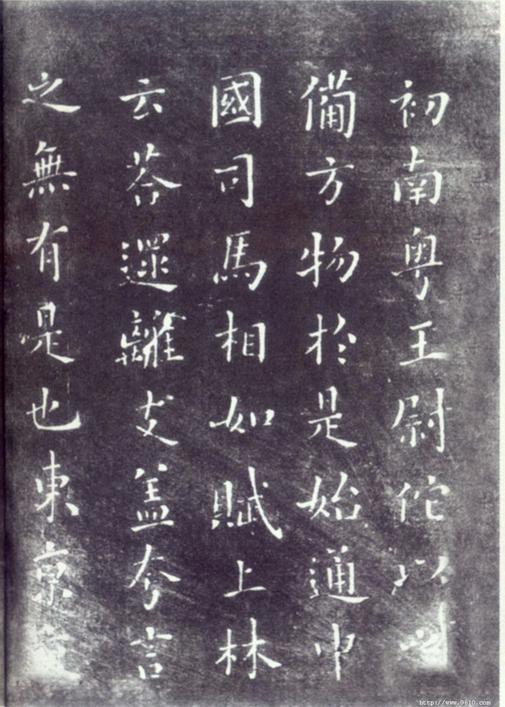 初南粤王尉佗以
備方物於是始通中
國司馬相如賦上林
云荅遝離支盖夸言
之無有是也東京
http://www.9610.com